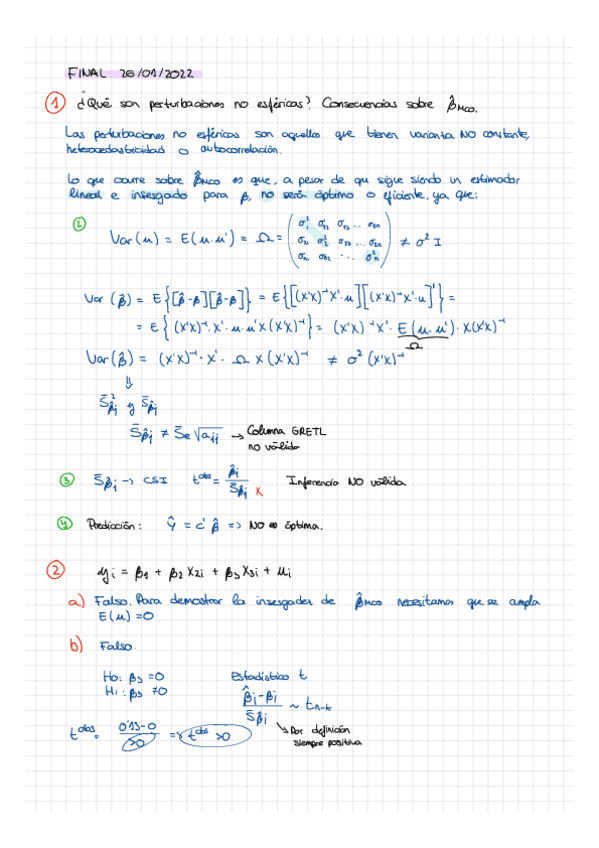 FINAL 26/01/2022
1 ¿Qué son perturbaciones no esféricas? Consecuencias sobre β̂MCO.
Las perturbaciones no esféricas son aquellas que tienen varianza NO constante,
heterocedasticidad o autocorrelación.
Lo que ocurre sobre β̂MCO es que, a pesar de que sigue siendo un estimador
lineal e insesgado para β, no será óptimo o eficiente, ya que:
2
Var(u) = E(u·u') = Ω = (σ²₁ σ₁₂ σ₁₃ ... σ₂ₙ
σ₂₁ σ²₂ σ₂₃ ... σ₂ₙ
σₙ₁ σₙ₂ ... σ²ₙ) ≠ σ² I
Var(β̂) = E{[β̂-β][β̂-β]'} = E{[(X'X)⁻¹X'·u][(X'X)⁻¹X'·u]'} =
= E{(X'X)⁻¹·X'·u·u'X(X'X)⁻¹} = (X'X)⁻¹X'·E(u·u')·X(X'X)⁻¹
Ω
Var(β̂) = (X'X)⁻¹·X'·Ω X(X'X)⁻¹ ≠ σ²(X'X)⁻¹
⇓
S̄²β̂j y S̄β̂j
S̄β̂j ≠ S̄e √ajj → Columna GRETL
no válida
3 S̄β̂j → CSI tobs = β̂j / S̄β̂j X Inferencia NO válida
4 Predicción: Ŷ = c'β̂ => NO es óptima.
2 yi = β1 + β2 X2i + β3 X3i + ui
a) Falso. Para demostrar la insesgadez de β̂MCO necesitamos que se cumpla
E(u) = 0
b) Falso.
H0: β3 = 0 Estadístico t
H1: β3 ≠ 0 β̂j-βj / S̄β̂j ~ tn-k
tobs = 0'13-0 / >0 => tobs >0 ↘ Por definición
siempre positiva